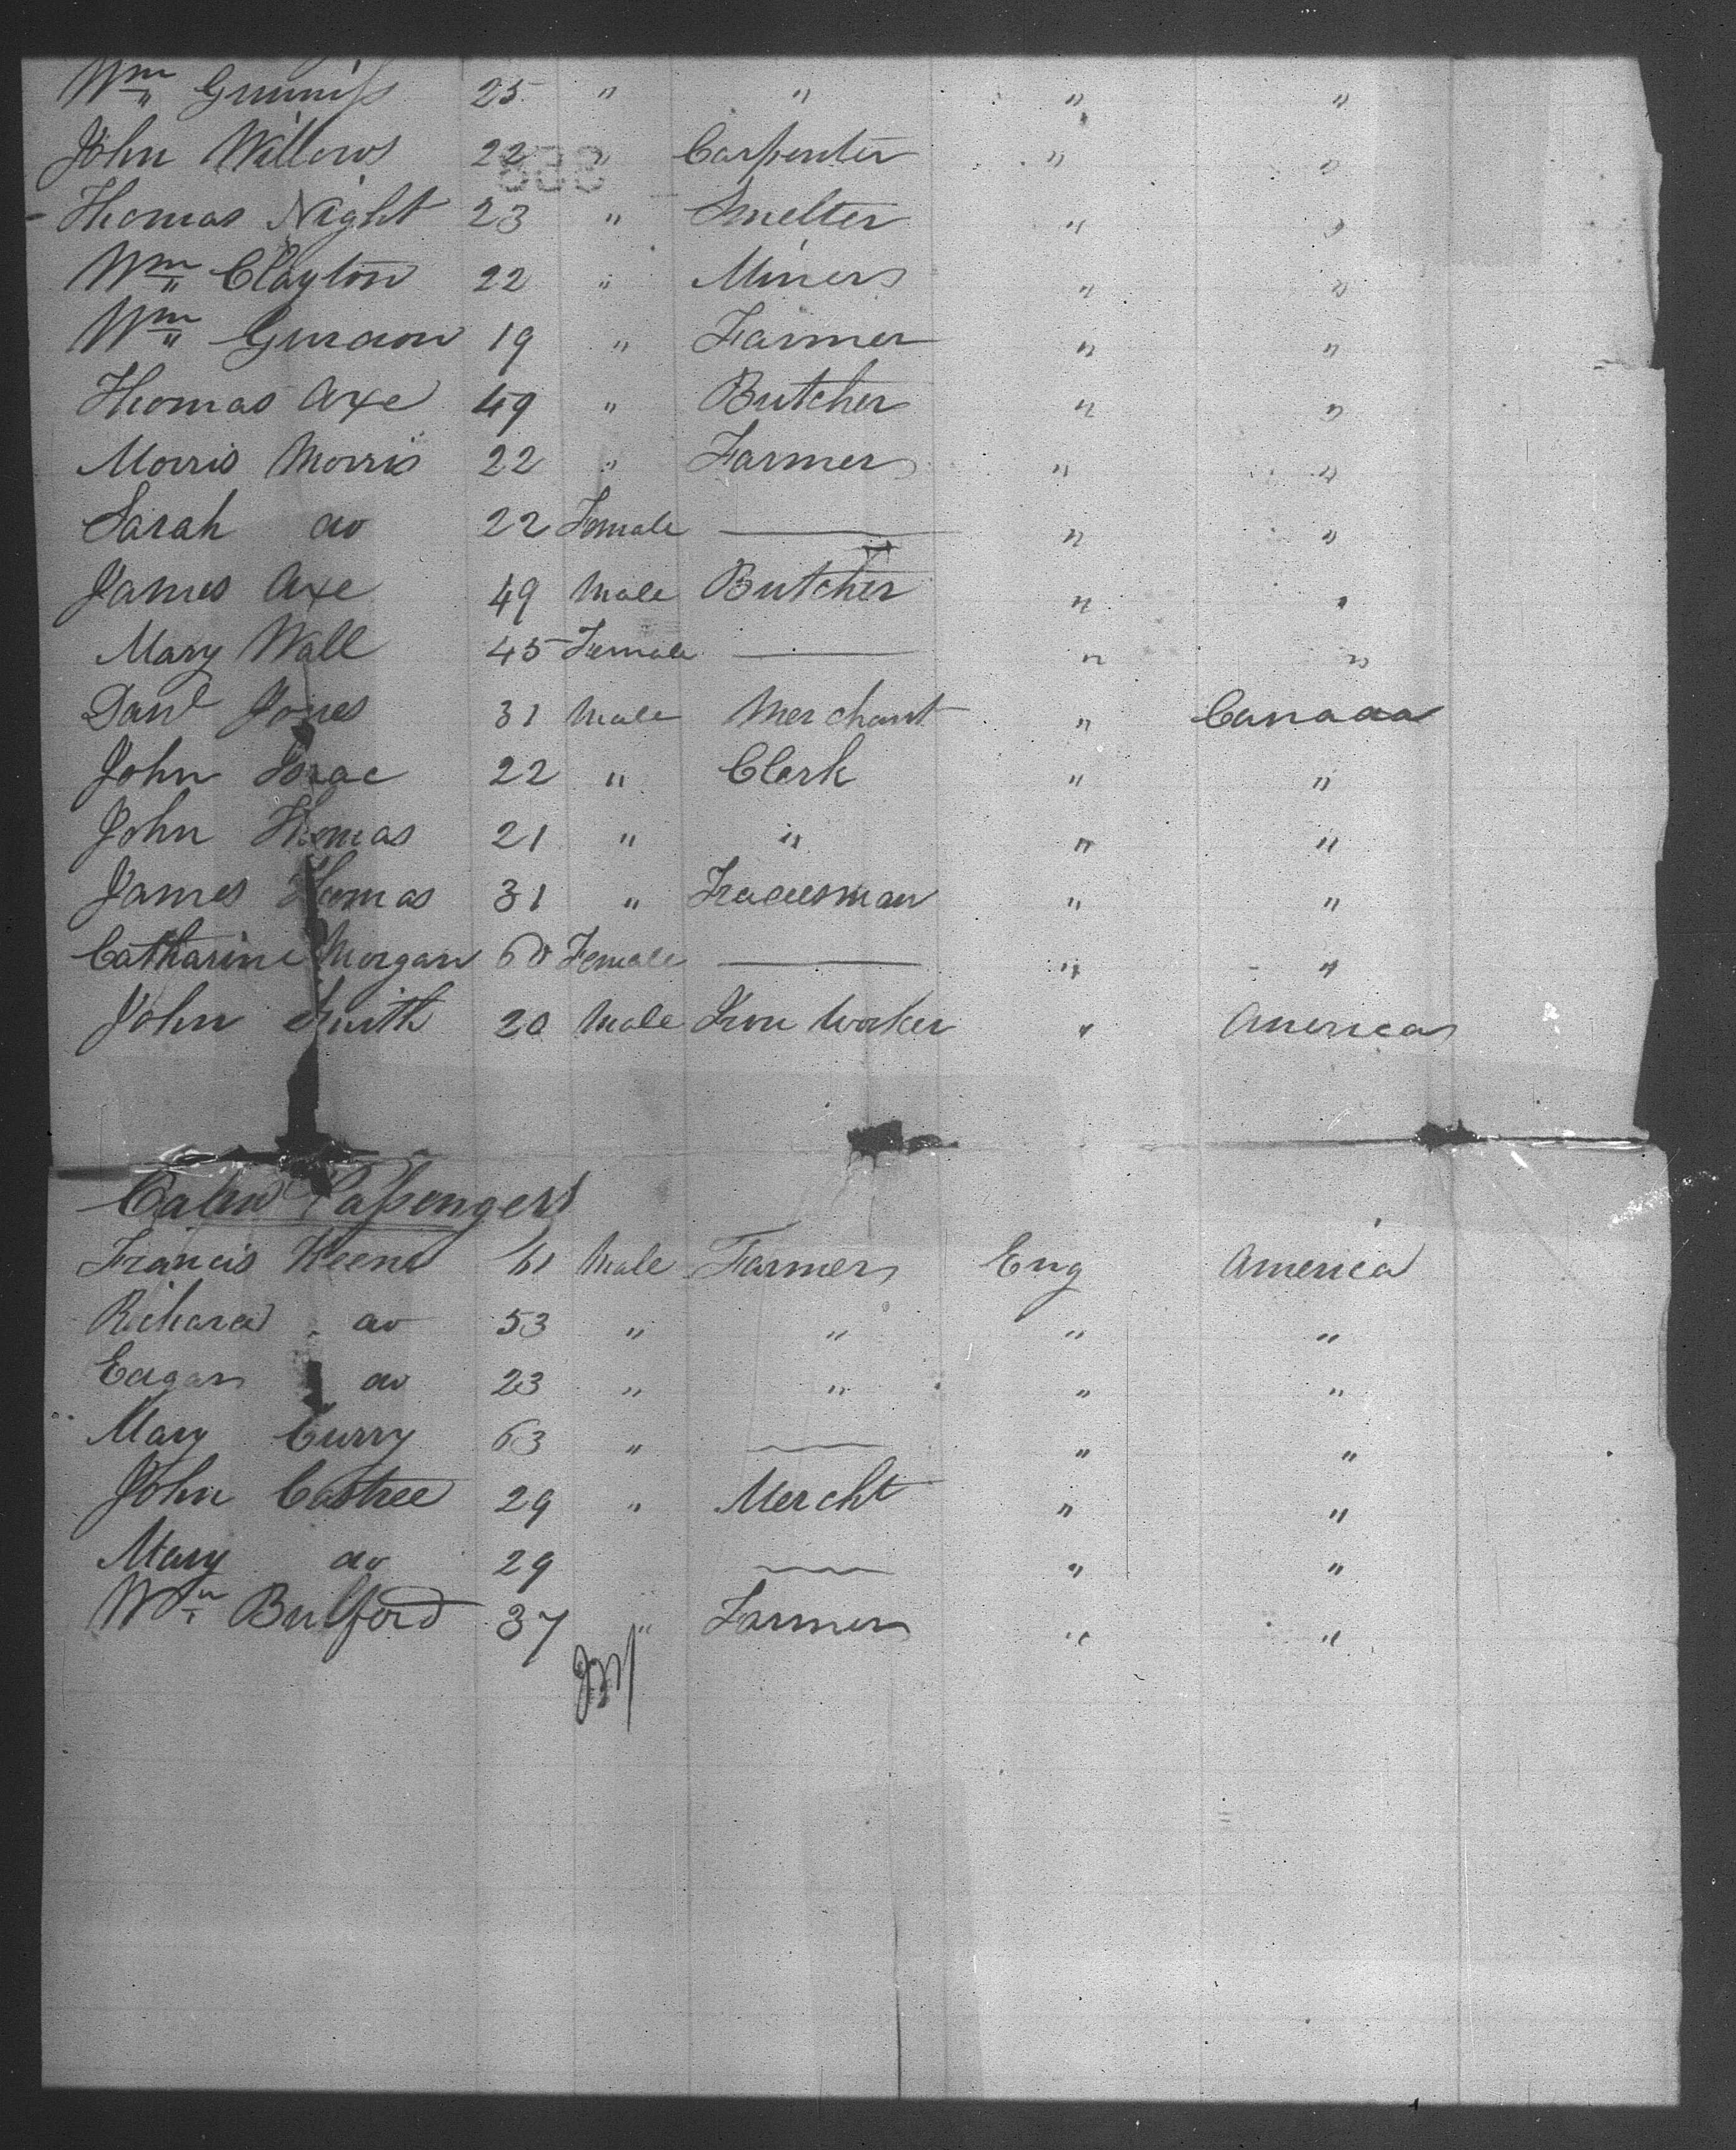 Wm Gunniss 25 " " " "
John Willows 22 " Carpenter " "
Thomas Night 23 " Smelter " "
Wm Clayton 22 " Miner " "
Wm 19 " Farmer " "
Thomas Axe 49 " Butcher " "
Morris Morris 22 " Farmer " "
Sarah do 22 Female — " "
James Axe 49 Male Butcher " "
Mary Wall 45 Female — " "
Danl Jones 31 Male Merchant " Canada
John Isaac 22 " Clerk " "
John Thomas 21 " " " "
James Thomas 31 " Tradesman " "
Catharine Morgan 60 Female — " "
John Smith 20 Male Iron Worker " America
Cabin Passengers
Francis Keene 61 Male Farmer Eng America
Richard do 53 " " " "
Edgar do 23 " " " "
Mary Curry 63 " — " "
John Castree 29 " Mercht " "
Mary do 29 — " "
Wm Bulford 37 " Farmer " "